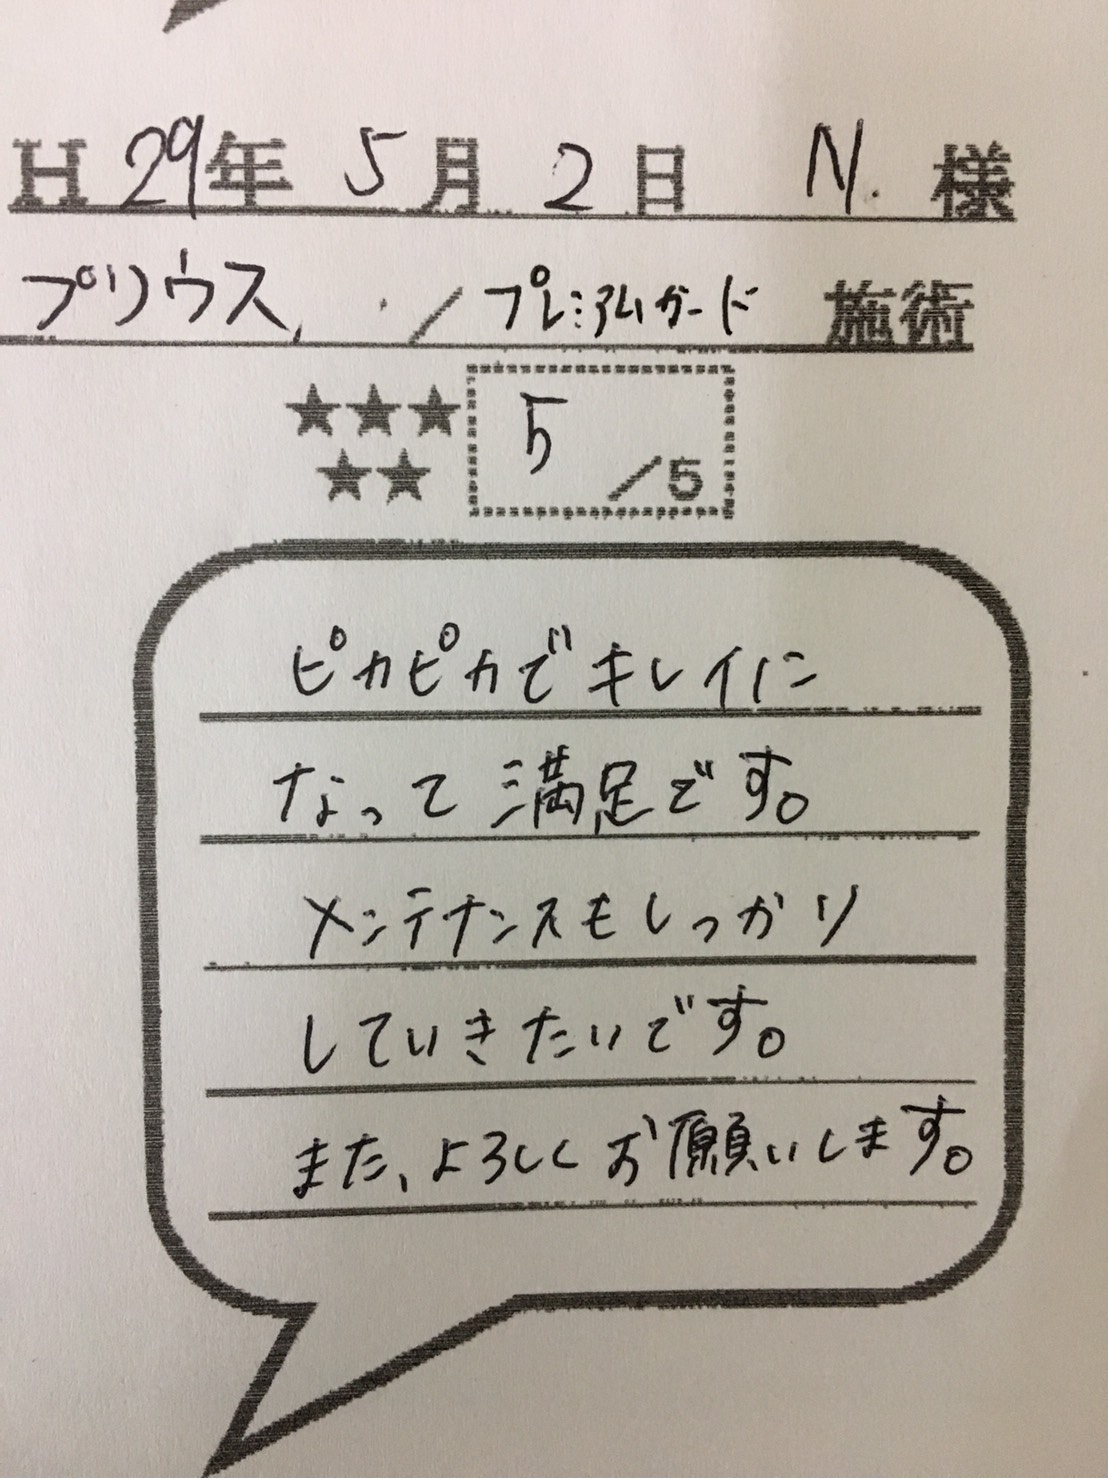 H 29年 5月 2日 N. 様
プリウス / プレミアムガード 施術
★★★
★★
5 /5
ピカピカでキレイに
なって満足です。
メンテナンスもしっかり
していきたいです。
また、よろしくお願いします。